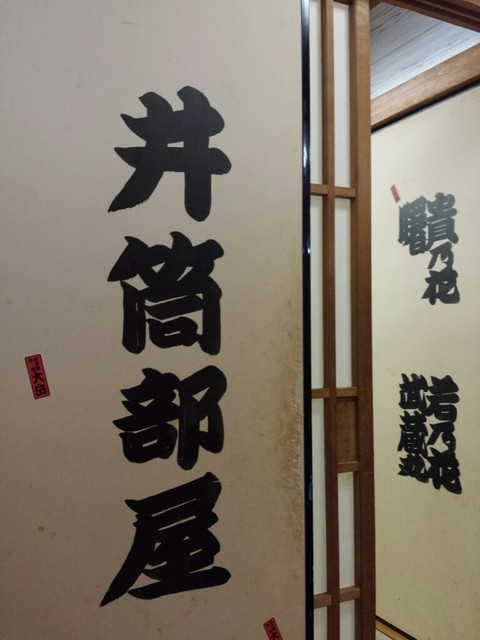 井筒部屋
大入
貴乃花
曙
若乃花
武蔵丸